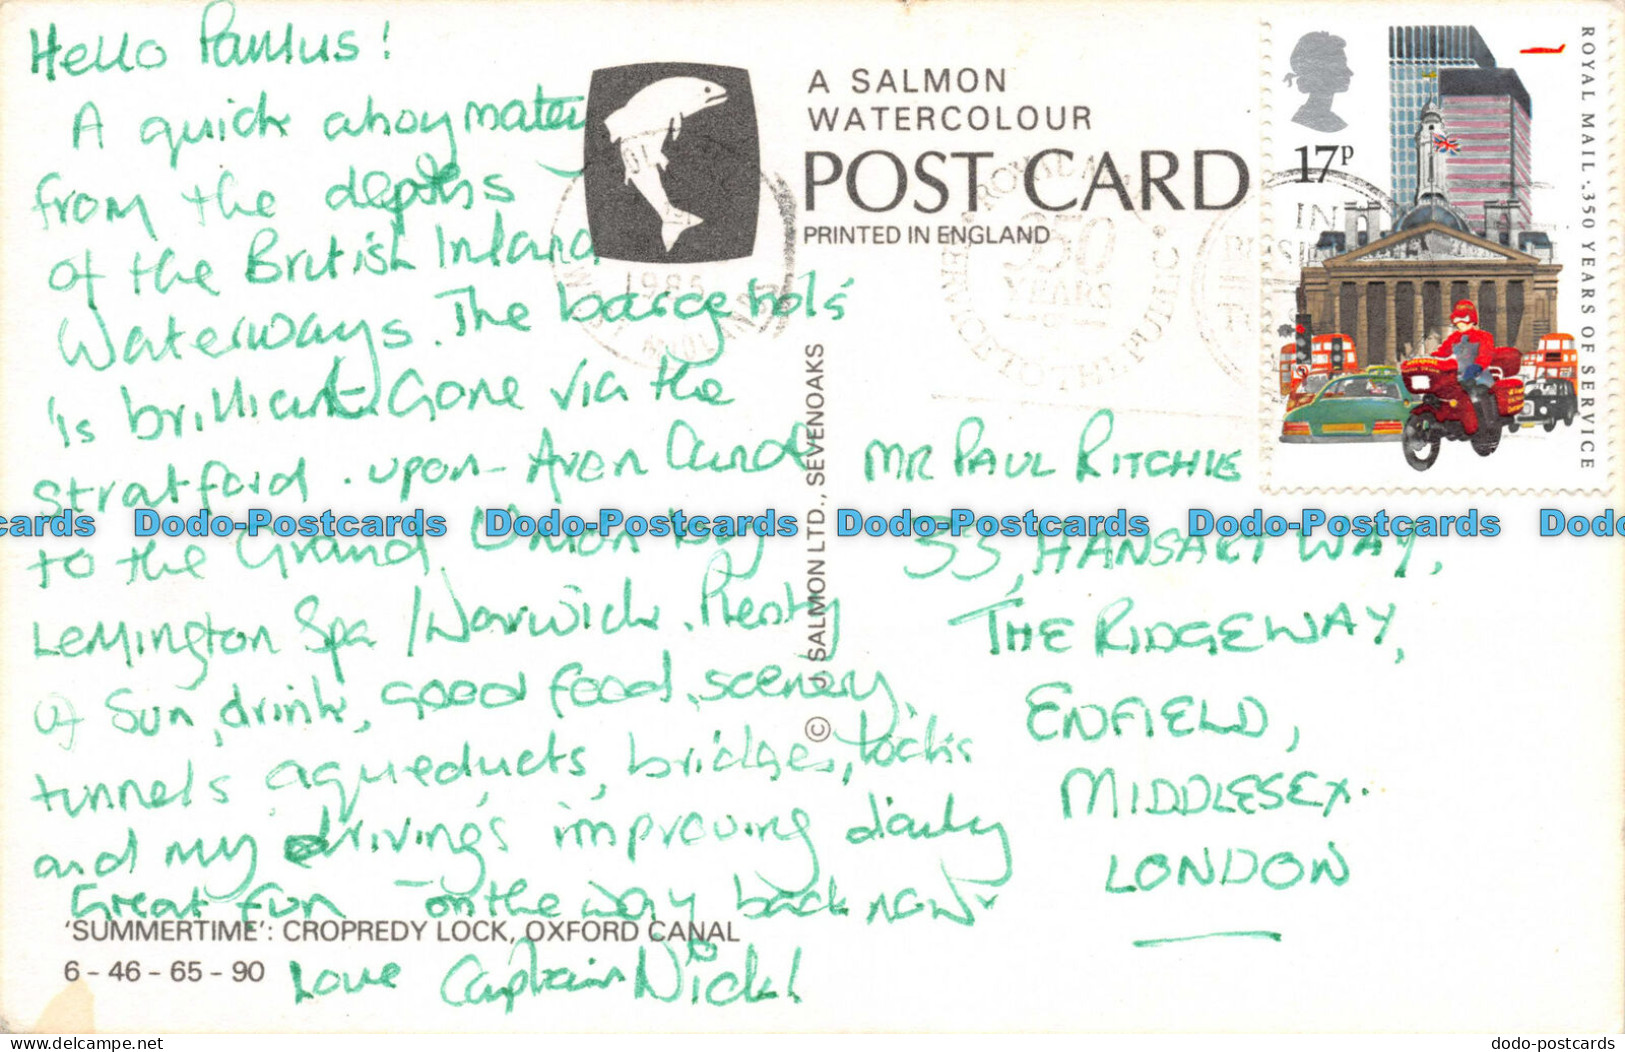 Hello Paulus!
A quick ahoy matey
from the depths
of the British Inland
Waterways. The barge hols'
is brilliant. Gone via the
Stratford-upon-Avon Canal
to the Grand Union by
Lemington Spa / Warwick. Plenty
of sun, drink, good food, scenery,
tunnels, aqueducts, bridges, locks
and my driving's improving daily
Great fun - on the way back now
Love Captain Nick!
'SUMMERTIME': CROPREDY LOCK, OXFORD CANAL
6 - 46 - 65 - 90
A SALMON
WATERCOLOUR
POST CARD
PRINTED IN ENGLAND
© J. SALMON LTD., SEVENOAKS
1985
350
YEARS
SERVICE TO THE PUBLIC
17P
ROYAL MAIL . 350 YEARS OF SERVICE
MR PAUL RITCHIE
33, HANSART WAY,
THE RIDGEWAY,
ENFIELD,
MIDDLESEX.
LONDON
cards Dodo-Postcards Dodo-Postcards Dodo-Postcards Dodo-Postcards Dodo
www.delcampe.net
dodo-postcards